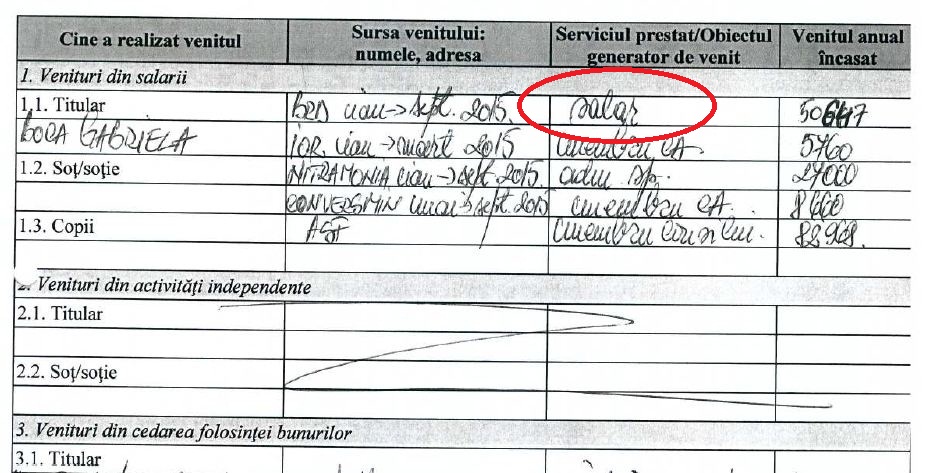 Cine a realizat venitul Sursa venitului: numele, adresa Serviciul prestat/Obiectul generator de venit Venitul anual încasat
1. Venituri din salarii
1.1. Titular BRD ian→sept. 2015. salar 50647
BORA GABRIELA IOR. ian→mart 2015 membru CA. 5760
1.2. Soț/soție NITRAMONIA, ian→sept 2015. adm 27000
CONVERSMIN sept. 2015 membru CA. 8660
1.3. Copii ASF membru consiliu. 88968.
2. Venituri din activități independente
2.1. Titular
2.2. Soț/soție
3. Venituri din cedarea folosinței bunurilor
3.1. Titular